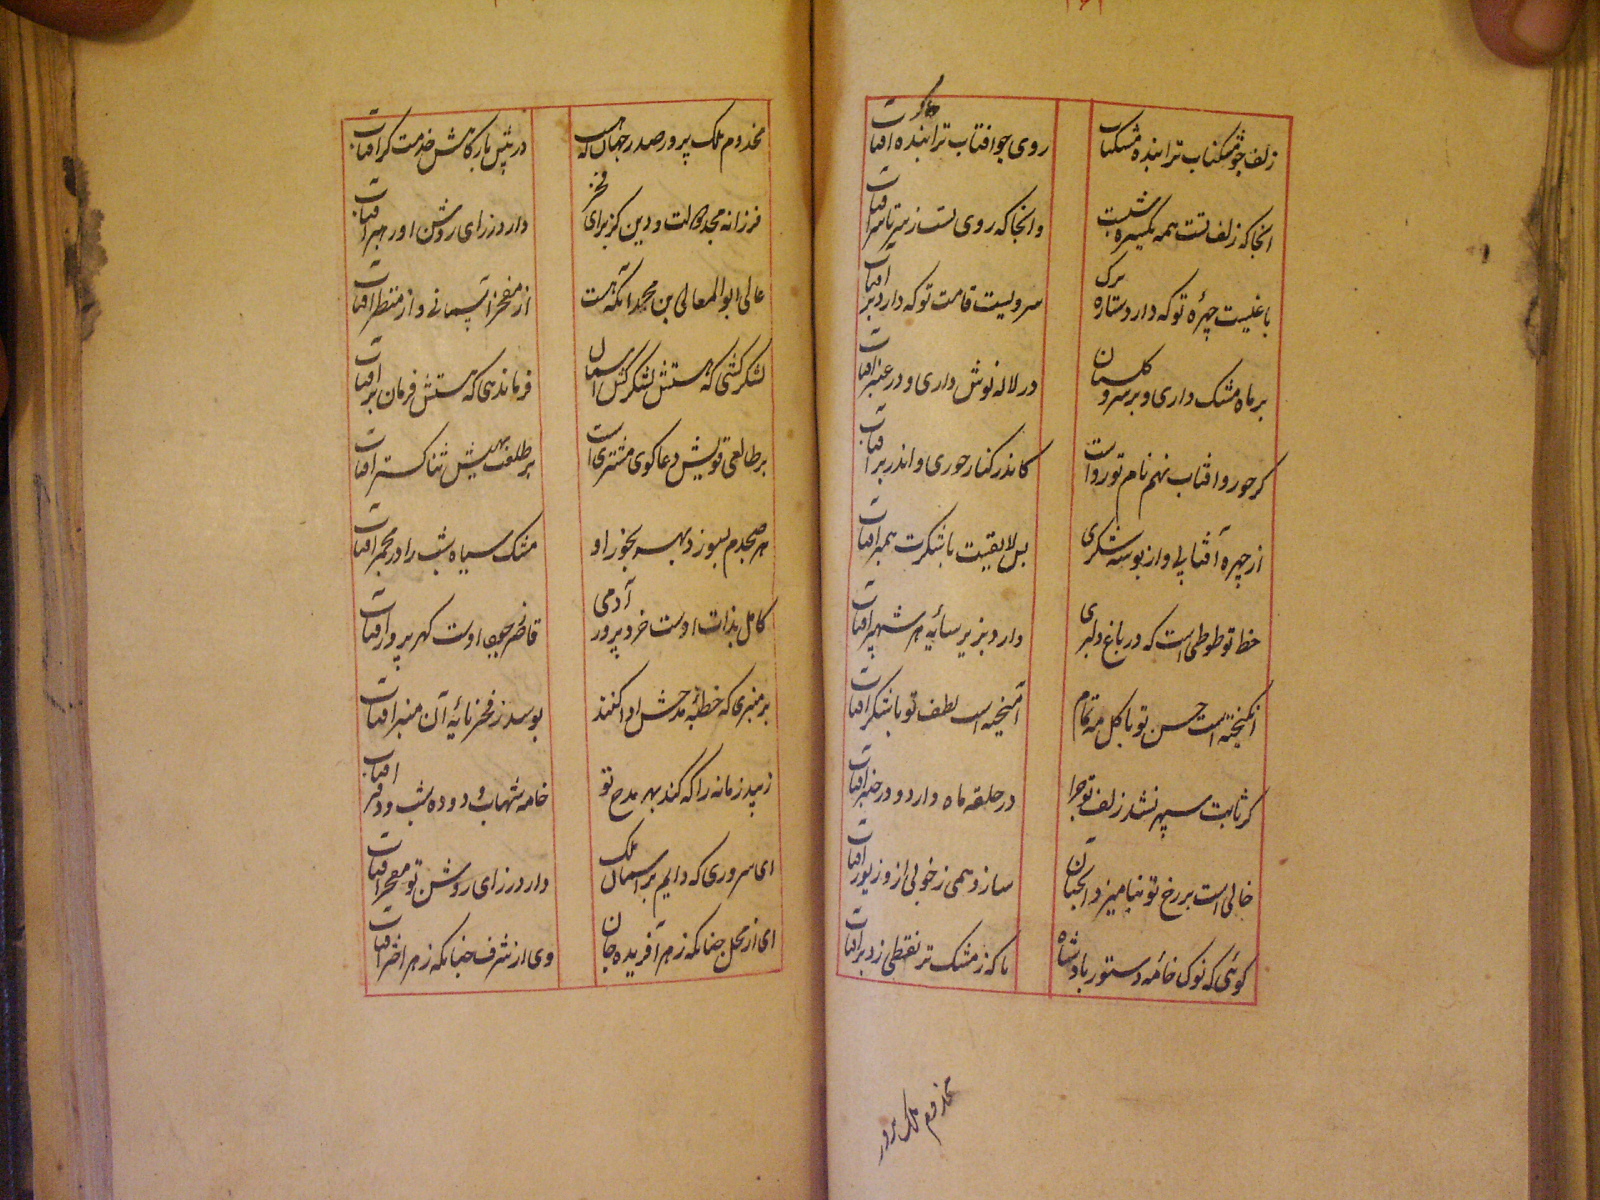 زلف چو مشکناب ترا بنده مشکناب
روی چو افتاب ترا بنده افتاب
انجا که زلف تست همه یکسره شبست
وانجا که روی تست ز سر تا سر افتاب
باغیست چهرهٔ تو که دارد ستاره برک
سرویست قامت تو که دارد بر افتاب
بر ماه مشک داری و بر سرو کلستان
در لاله نوش داری و در عنبر افتاب
کر حور و افتاب نهم نام تو رواست
کاندر کنار حوری و اندر بر افتاب
از چهره آفتابی و از بوسه شکری
بس لایقیست با شکرت همبر افتاب
خط تو طوطی است که در باغ دلبری
دارد بزیر سایهٔ هر شهپر افتاب
انکیخته است حسن تو با کل مه تمام
آمیخته است لطف تو با شکر افتاب
کر ثابت سپهر نشد زلف تو چرا
در حلقه ماه دارد و در چنبر افتاب
خالی است بر رخ تو بنامیزد آنچنان
سازد همی ز خوبی از و زیور افتاب
کوئی که نوک خامهٔ دستور بادشاه
ناکه ز مشک تر نقطی زد بر افتاب
مخدوم ملک پرور
مخدوم ملک پرور صدر جهان که هست
در پیش بارکاهش خدمت کر افتاب
فرزانه مجد دولت و دین کز برای فخر
دارد ز رای روشن او رهبر افتاب
عالی ابوالمعالی بن محمد آنکه هست
از مفخر آسمانی و از منظر افتاب
لشکر کشی که هستش لشکر کش آسمان
فرماندهی که هستش فرمان بر افتاب
بر طالع قویش دعا کوی مشتری است
بر طلعت بهیش ثنا کستر افتاب
هر صبحدم بسوزد بهر بخور او
مشک سیاه شب را در مجمر افتاب
کامل بذات اوست خرد پرور آدمی
قاصر بجود اوست کهر پرور افتاب
بر منبری که خطبهٔ مدحش ادا کنند
بوسد ز فخر پایهٔ آن منبر افتاب
زیبد زمانه را که کند بهر مدح تو
خامه شهاب و دوده شب و دفتر افتاب
ای سروری که دایم بر آسمان ملک
دارد ز رای روشن تو مفخر افتاب
ای از محل چنانکه ز هر آفریده جان
وی از شرف چنانکه ز هر اختر افتاب